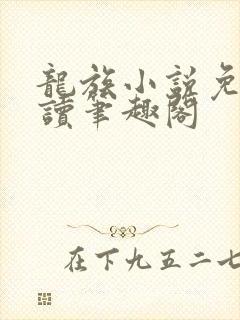 龍族小説免
讀筆趣閣
在下九五二七